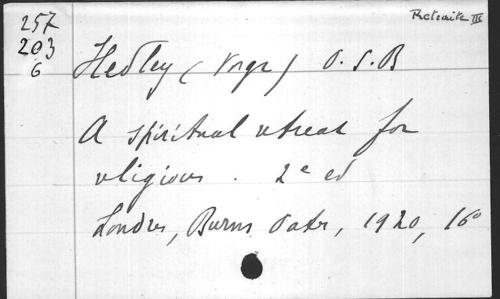 257
203
6
Retraite III
Hedley (Mgr) O.S.B
A spiritual retreat for
religious. 2e ed
Londres, Burns Oates, 1920, 16°